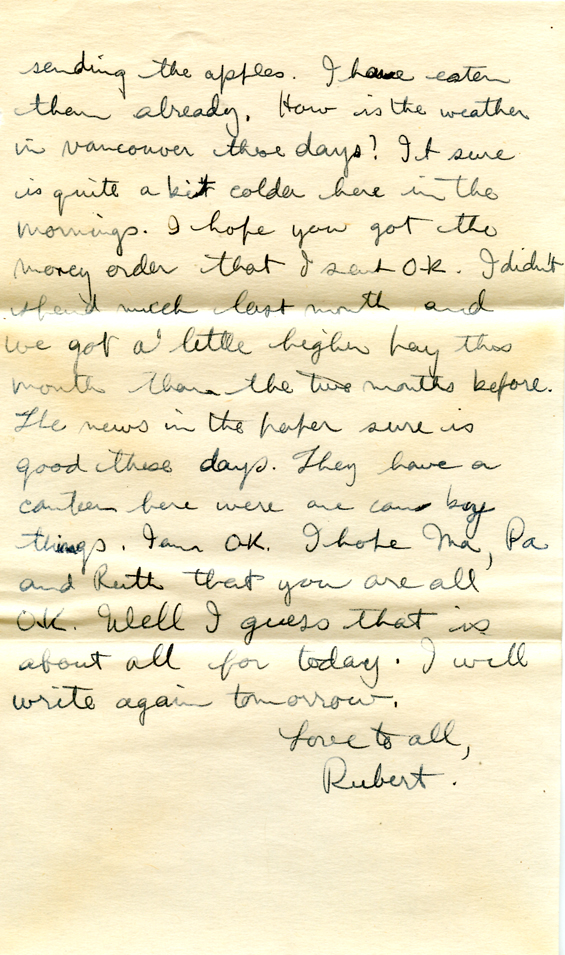 sending the apples. I have eaten
them already. How is the weather
in Vancouver these days? It sure
is quite a bit colder here in the
mornings. I hope you got the
money order that I sent OK. I didn't
spend much last month and
we got a little higher pay this
month than the two months before.
The news in the paper sure is
good these days. They have a
canteen here were we can buy
things. I am OK. I hope Ma, Pa
and Ruth that you are all
OK. Well I guess that is
about all for today. I will
write again tomorrow.
Love to all,
Rubert.